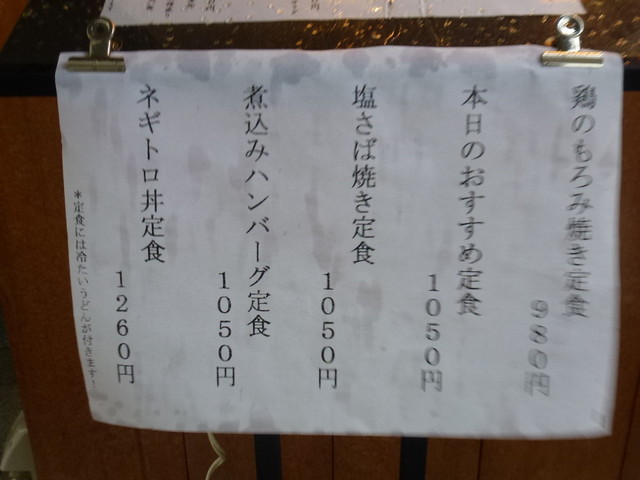 鶏のもろみ焼き定食
980円
本日のおすすめ定食
1050円
塩さば焼き定食
1050円
煮込みハンバーグ定食
1050円
ネギトロ丼定食
1260円
*定食には冷たいうどんが付きます!